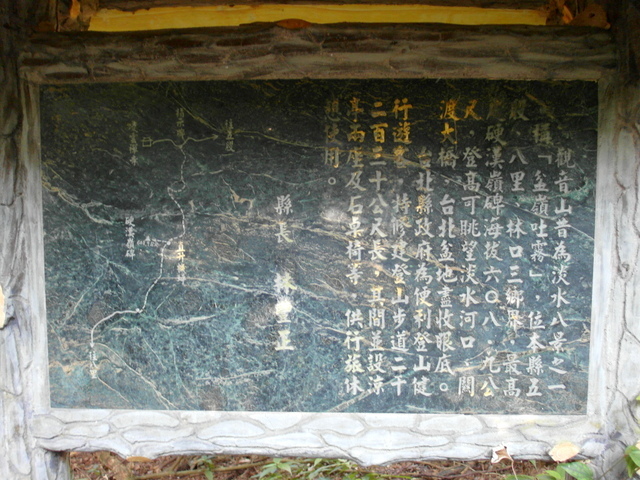 觀音山昔為淡水八景之一
稱「坌嶺吐霧」，位本縣五
股、八里、林口三鄉界，最高
硬漢嶺碑海拔六〇八．九公
尺，登高可眺望淡水河口、關
渡大橋，台北盆地盡收眼底。
台北縣政府為便利登山健
行遊客，特修建登山步道二千
二百三十公尺長，其間並設涼
亭兩座及石桌椅等，供行旅休
憩使用。
縣長 林豐正
硬漢嶺碑